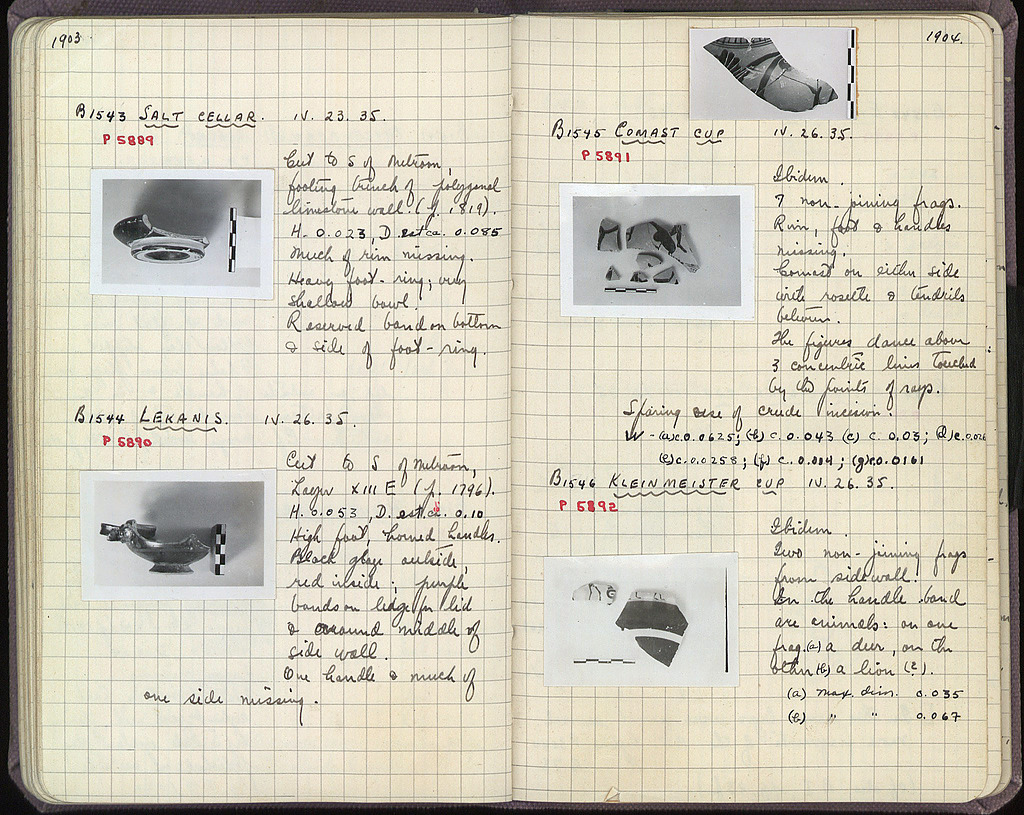 1903
B1543 SALT CELLAR. IV. 23. 35.
P 5889
Cut to S of Metroon,
footing trench of polygonal
limestone wall. (p. 1819).
H. 0.023, D. est. ca. 0.085
Much of rim missing.
Heavy foot-ring; very
shallow bowl.
Reserved band on bottom
& side of foot-ring.
B1544 LEKANIS. IV. 26. 35.
P 5890
Cut to S of Metroon,
Layer XIII E (p. 1796).
H. 0.053, D. est. ca. 0.10
High foot, horned handles.
Black glaze outside,
red inside; purple
bands on ledge for lid
& around middle of
side wall.
One handle & much of
one side missing.
1904.
B1545 COMAST CUP IV. 26. 35.
P 5891
Ibidem.
7 non-joining frags.
Rim, foot & handles
missing.
Comast on either side
with rosette & tendrils
between.
The figures dance above
3 concentric lines touched
by the points of rays.
Sparing use of crude incision.
W - (a) c. 0.0625; (b) c. 0.043 (c) c. 0.03; (d) c. 0.026
(e) c. 0.0258; (f) c. 0.014; (g) c. 0.0161
B1546 KLEINMEISTER CUP IV. 26. 35.
P 5892
Ibidem.
Two non-joining frags
from side wall.
In the handle band
are animals: on one
frag. (a) a deer, on the
other (b) a lion (?).
(a) max. dim. 0.035
(b) " " 0.067